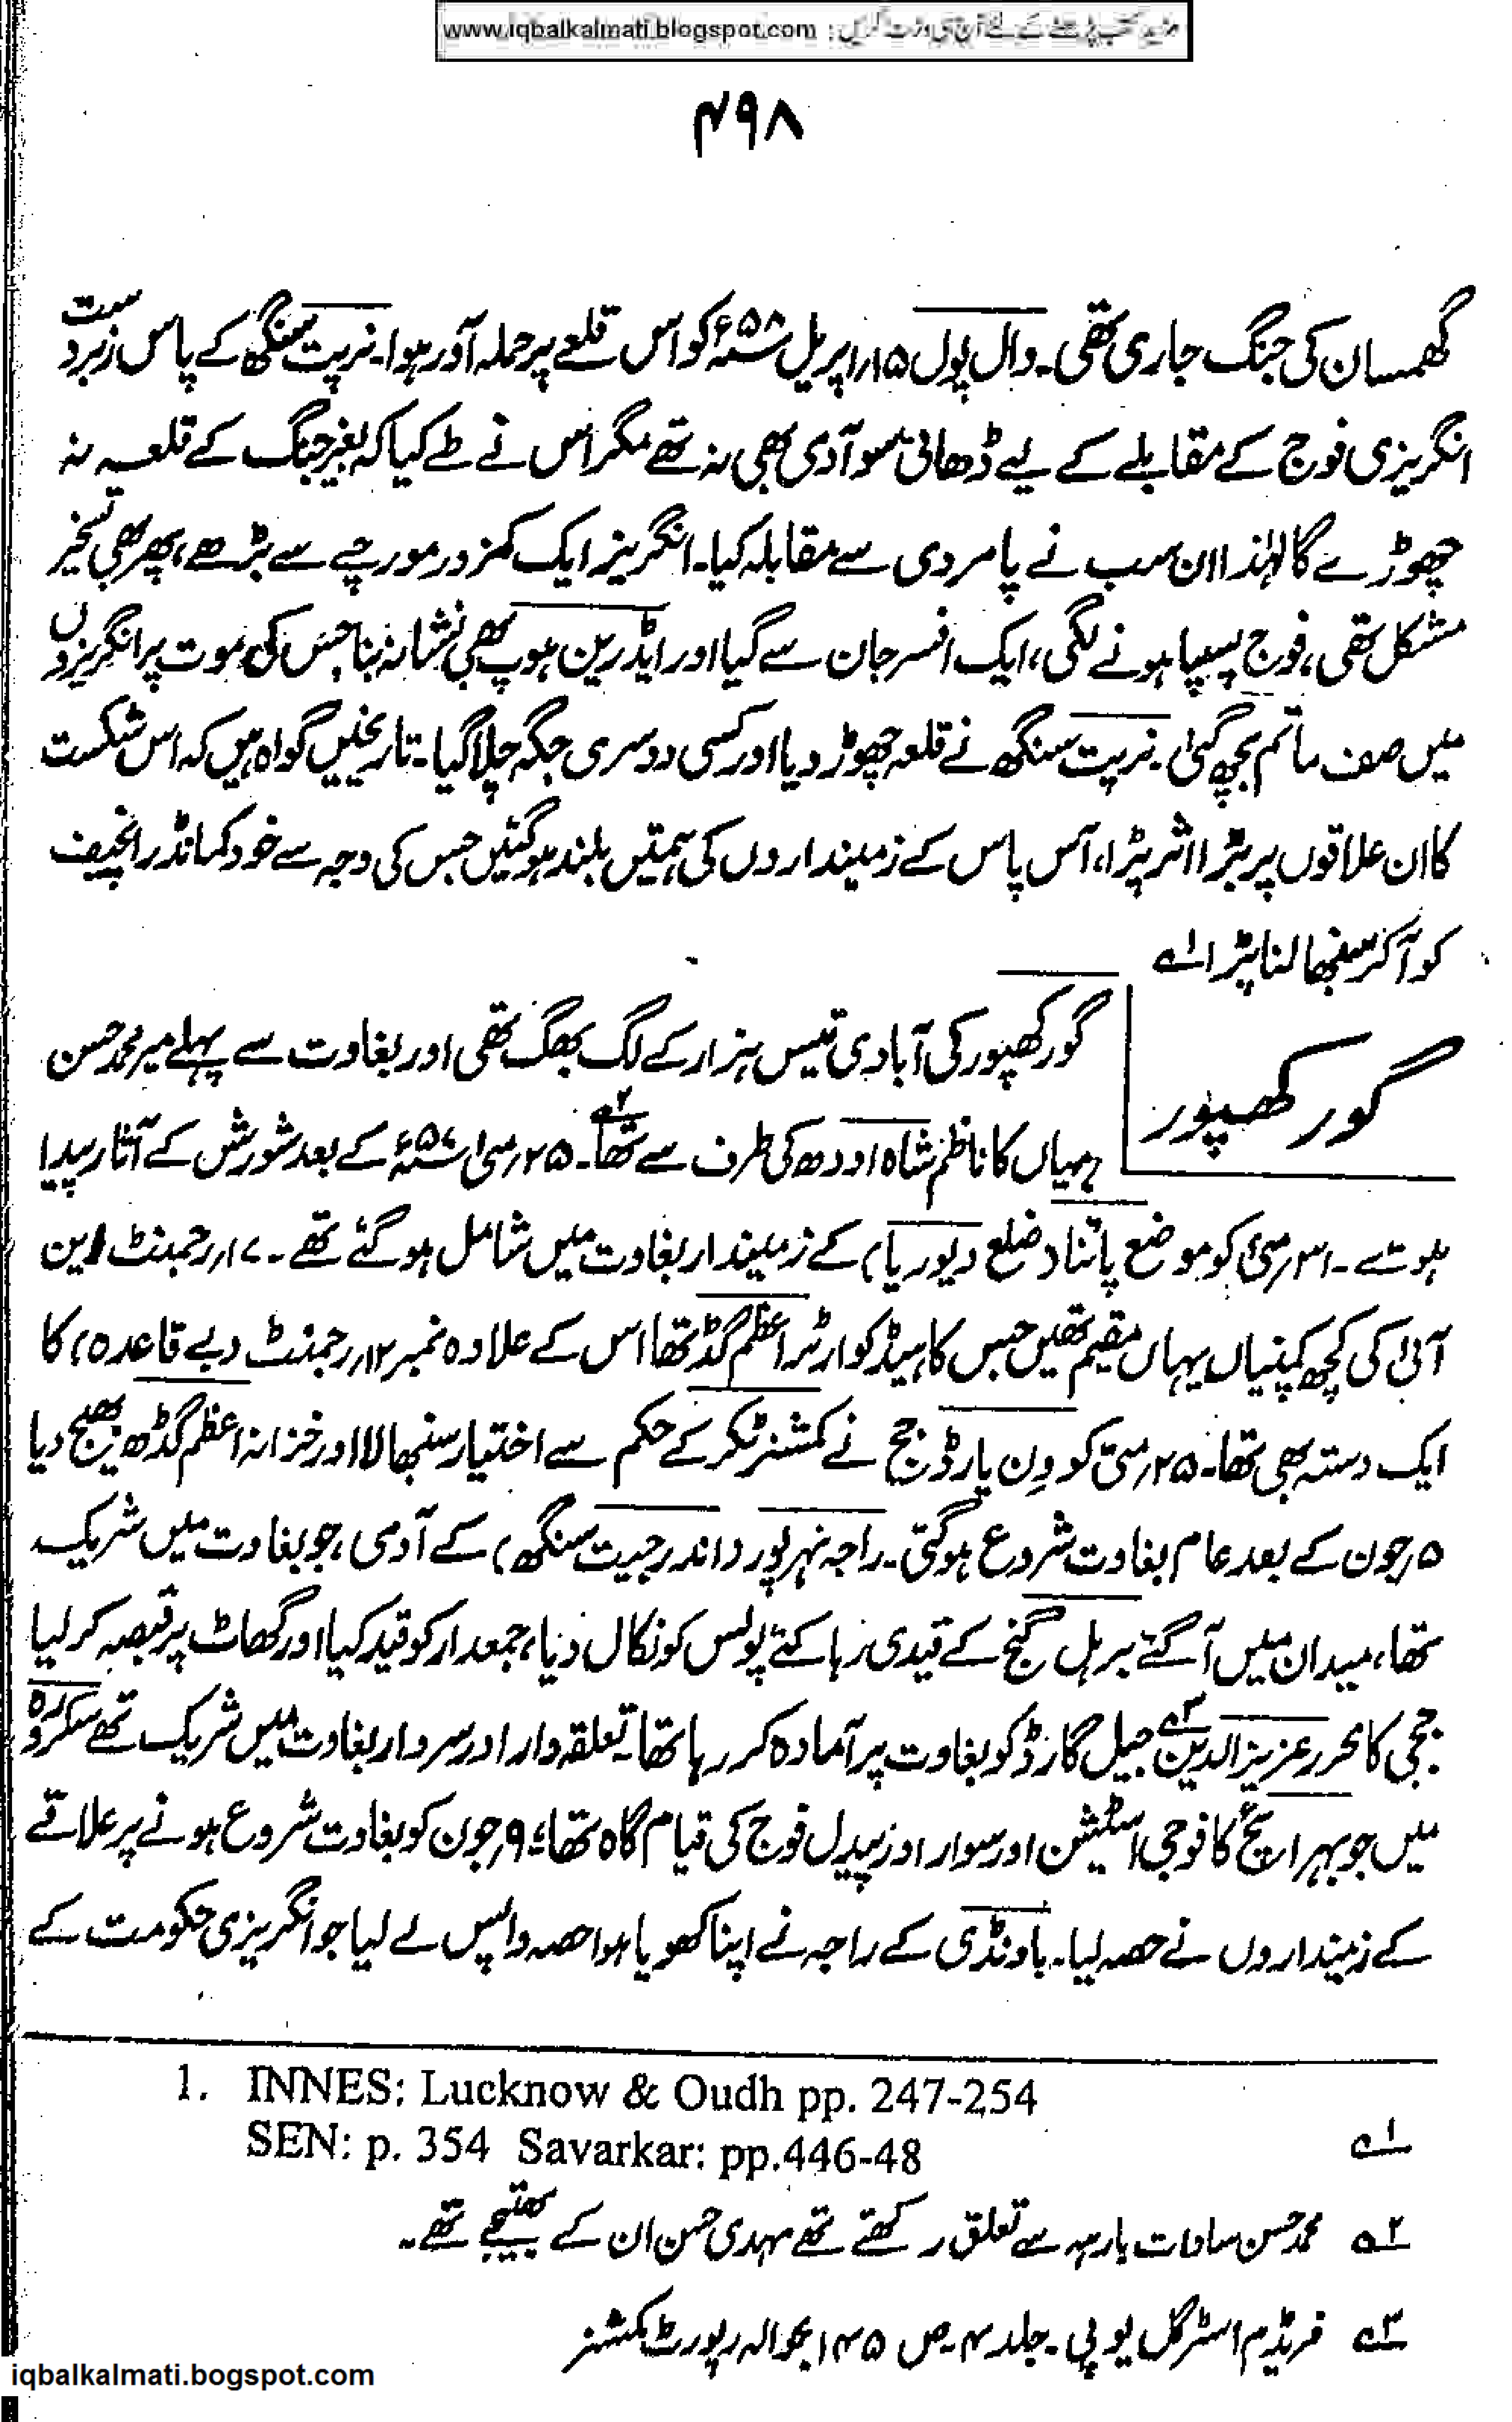 مزید کتب پڑھنے کے لئے آج ہی وزٹ کریں : www.iqbalkalmati.blogspot.com
۴۹۸
گھمسان کی جنگ جاری تھی۔ وال پول ۱۵؍اپریل ۵۸ء کو اس قلعے پر حملہ آور ہوا۔ نرپت سنگھ کے پاس زبردست
انگریزی فوج کے مقابلے کے لیے ڈھائی سو آدمی بھی نہ تھے مگر اس نے طے کیا کہ بغیر جنگ کے قلعہ نہ
چھوڑے گا لہٰذا ان سب نے پامردی سے مقابلہ کیا۔ انگریز ایک کمزور مورچے سے بڑھے، پھر بھی تسخیر
مشکل تھی، فوج پسپا ہونے لگی، ایک افسر جان سے گیا اور ایڈرین ہوپ بھی نشانہ بنا جس کی موت پر انگریزوں
میں صف ماتم بچھ گئی۔ نرپت سنگھ نے قلعہ چھوڑ دیا اور کسی دوسری جگہ چلا گیا۔ تاریخیں گواہ ہیں کہ اس شکست
کا ان علاقوں پر بڑا اثر پڑا، آس پاس کے زمینداروں کی ہمتیں بلند ہوگئیں جس کی وجہ سے خود کمانڈر انچیف
کو آکر سنبھالنا پڑا ؎۱
گورکھپور
گورکھپور کی آبادی تیس ہزار کے لگ بھگ تھی اور بغاوت سے پہلے میر محمد حسن
یہاں کا ناظم شاہ اودھ کی طرف سے تھا؎۲۔ ۲۵؍مئی ۵۷ء کے بعد شورش کے آثار پیدا
ہوتے۔ ۳۱؍مئی کو موضع پائنا (ضلع دیوریا) کے زمیندار بغاوت میں شامل ہوگئے تھے۔ ۱۷؍رجمنٹ این
آئی کی کچھ کمپنیاں یہاں مقیم تھیں جس کا ہیڈکوارٹر اعظم گڈھ تھا اس کے علاوہ نمبر ۱۲؍رجمنٹ (بے قاعدہ) کا
ایک دستہ بھی تھا۔ ۲۵؍مئی کو وِن یارڈ جج نے کمشنر ٹکر کے حکم سے اختیار سنبھالا اور خزانہ اعظم گڈھ بھیج دیا
۵؍جون کے بعد عام بغاوت شروع ہوگئی۔ راجہ نرہرپور (اندرجیت سنگھ) کے آدمی، جو بغاوت میں شریک
تھا، میدان میں آگئے برہل گنج کے قیدی رہا کئے پولس کو نکال دیا، جمعدار کو قید کیا اور گھاٹ پر قبضہ کرلیا
ججی کا محرر عزیز الدین؎۳ جیل گارڈ کو بغاوت پر آمادہ کر رہا تھا۔ تعلقہ دار اور سردار بغاوت میں شریک تھے سکرورہ
میں جو بہرائچ کا فوجی اسٹیشن اور سوار اور پیدل فوج کی قیام گاہ تھا؛ ۹؍جون کو بغاوت شروع ہونے پر علاقے
کے زمینداروں نے حصہ لیا۔ باونڈی کے راجہ نے اپنا کھویا ہوا حصہ واپس لے لیا جو انگریزی حکومت کے
1. INNES: Lucknow & Oudh pp. 247-254
SEN: p. 354 Savarkar: pp.446-48
؎۱
؎۲ محمد حسن سادات بارہہ سے تعلق رکھتے تھے مہدی حسن ان کے بھتیجے تھے۔
؎۳ فریڈم اسٹرگل یو پی۔ جلد ۴۔ ص ۱۴۵ بحوالہ رپورٹ کمشنر
iqbalkalmati.bogspot.com